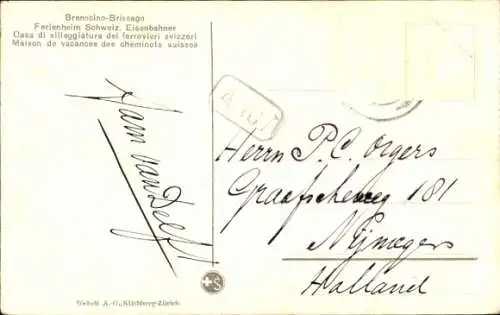 Brenscino-Brissago
Ferienheim Schweiz. Eisenbahner
Casa di villeggiatura dei ferrovieri svizzeri
Maison de vacances des cheminots suisses
Ham van Delft
Herrn P. C. Orgers
Graafscheweg 181
Nijmegen
Holland
S
Wehrli A.-G., Kilchberg-Zürich